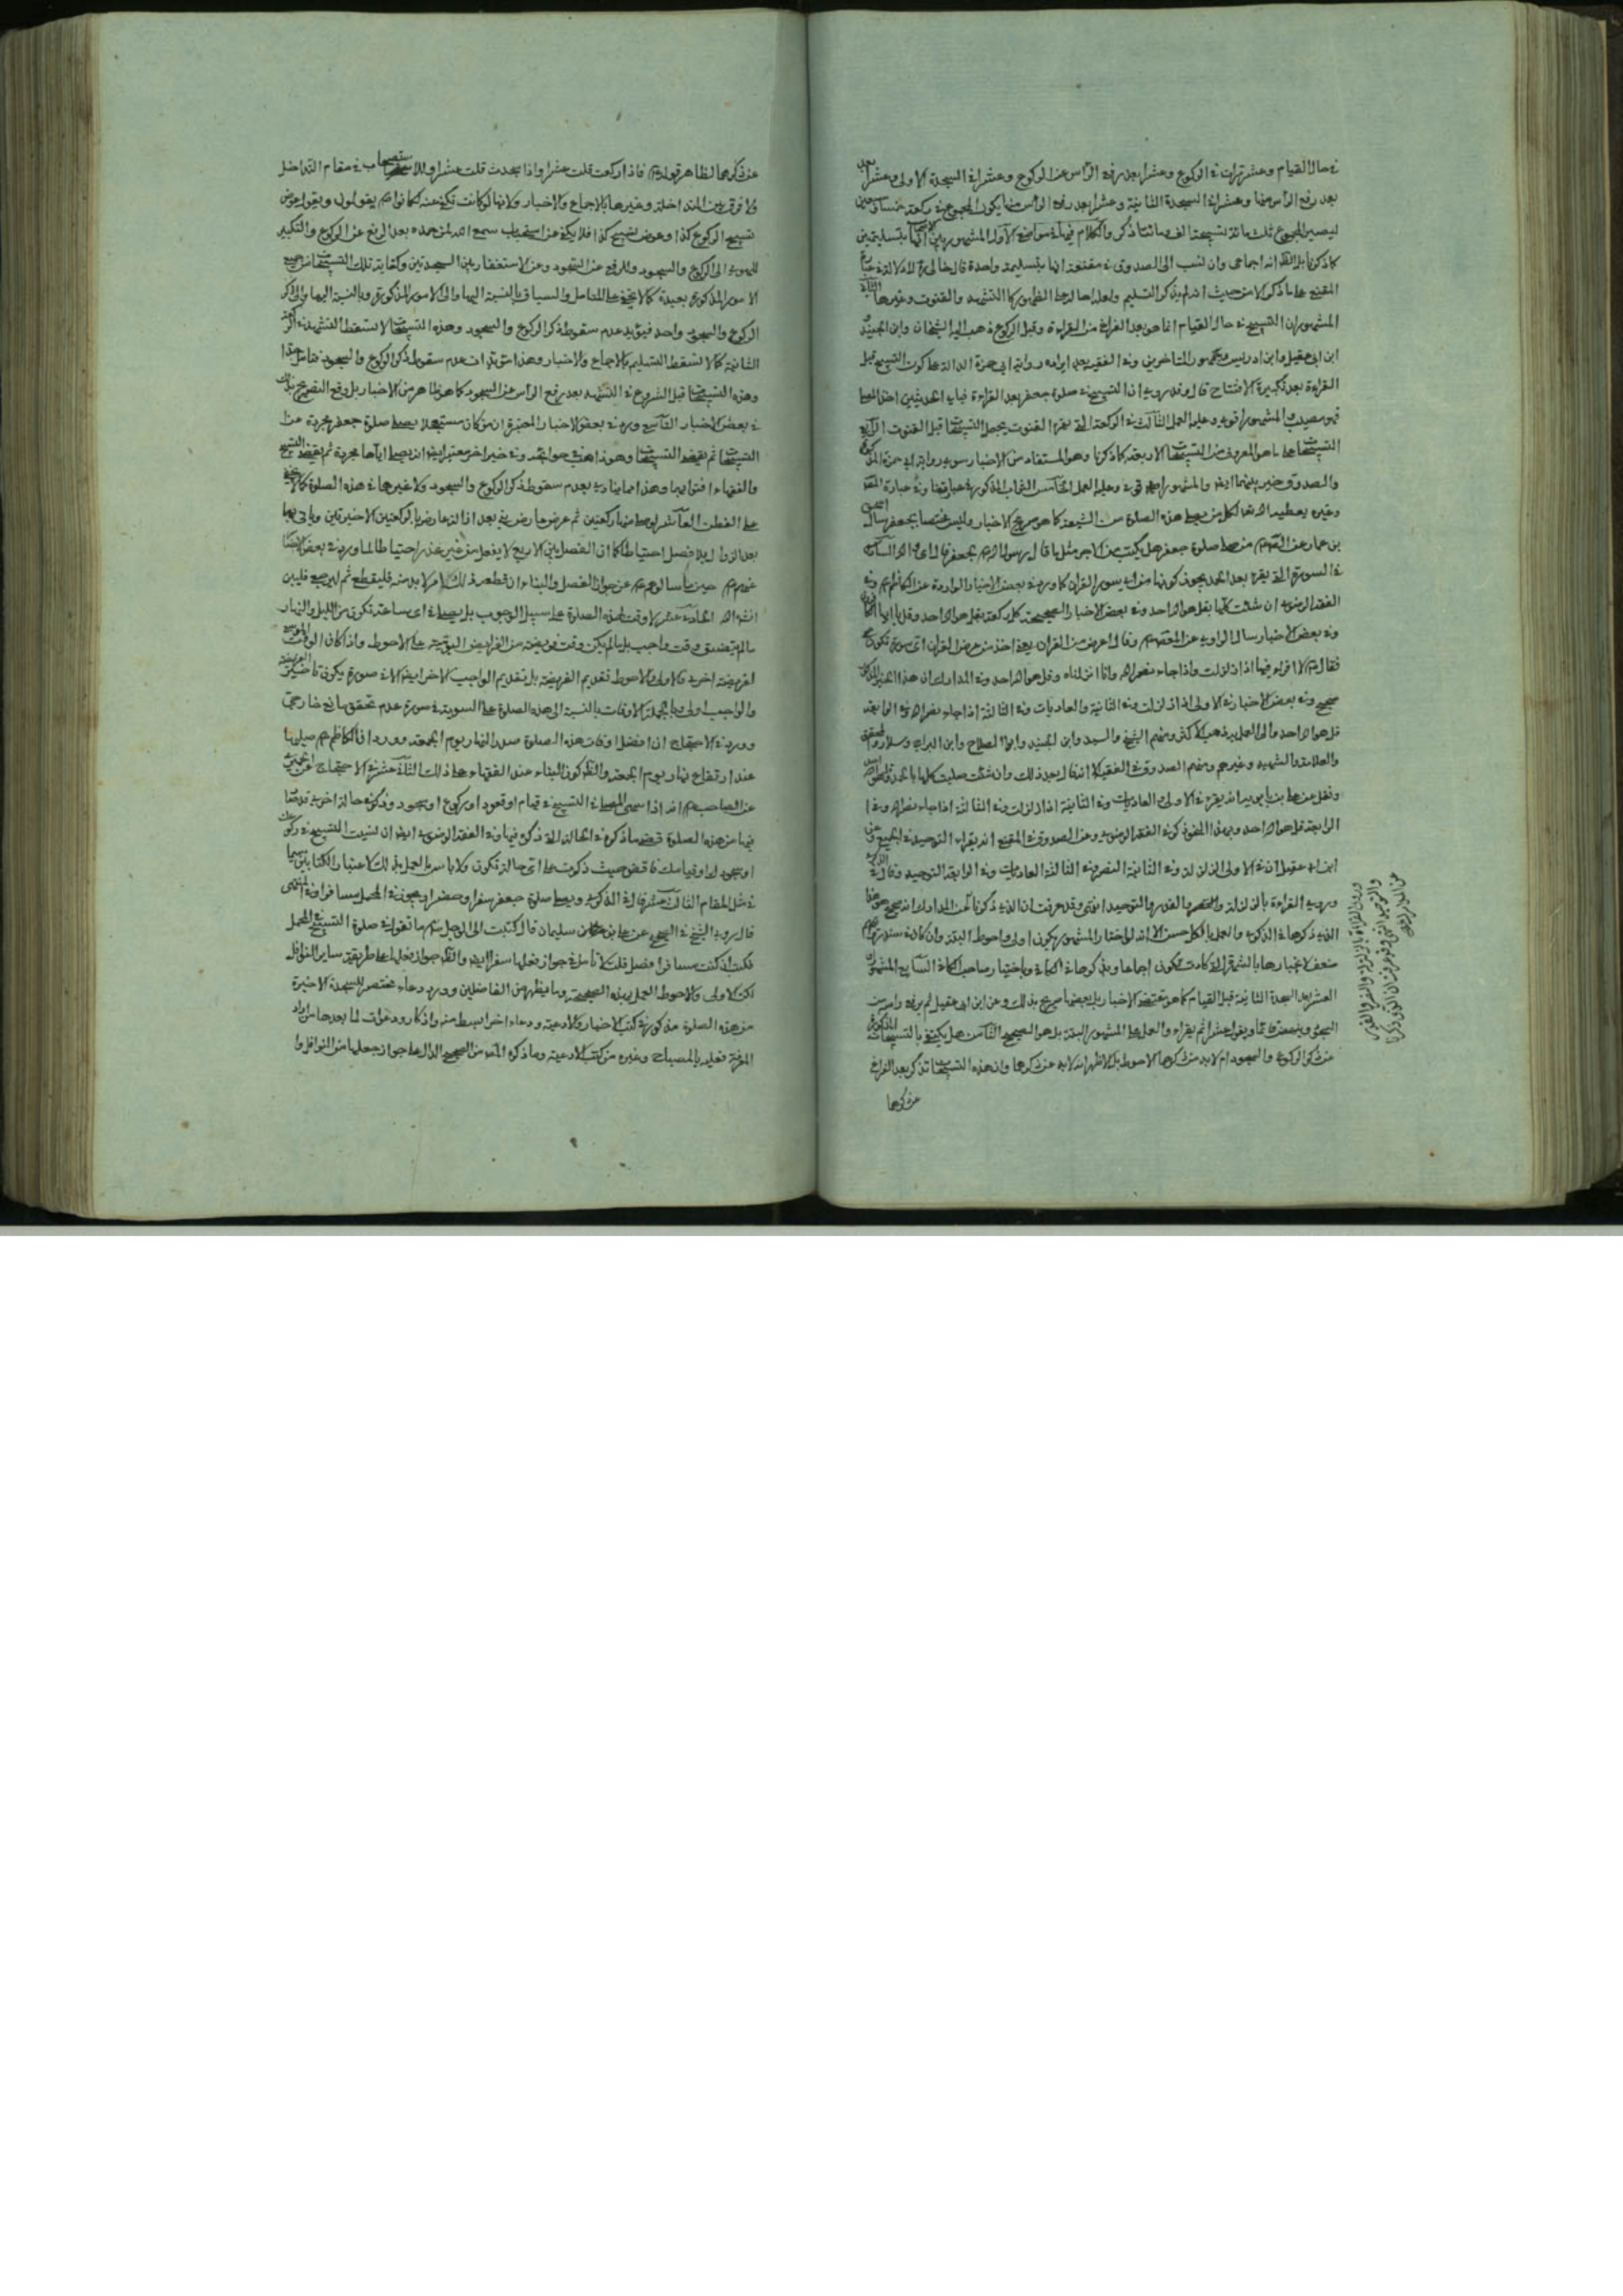 في حال القيام وعشر مرات في الركوع وعشرا بعد رفع الرأس عن الركوع وعشرا في السجدة الاولى وعشرا بعد
بعد رفع الرأس منها وعشرا في السجدة الثانية وعشرا بعد رفع الرأس منها يكون المجموع في ركعة خمسا وسبعين
ليصير المجموع ثلث مائة تسبيحة الف ومائتا ذكر والكلام فيها في مواضع الأول المشهور بين الاصحاب انها بتسليمتين
كما ذكرنا بل الظ انه اجماعي وان نسب الى الصدوق في مقنعه انها بتسليمة واحدة قال خالي ره لا دلالة في عبارة
المقنع على ما ذكر الا من حيث انه لم يذكر التسليم ولعله احاله على الظهور كالتشهد والقنوت وغيرها الثاني
المشهور ان التسبيح في حال القيام انما هو بعد الفراغ من القراءة وقبل الركوع ذهب اليه الشيخان وابن الجنيد و
ابن ابي عقيل وابن ادريس وجمهور المتاخرين وفي الفقيه بعد ايراده رواية ابي حمزة الدالة على كون التسبيح قبل
القراءة بعد تكبيرة الافتتاح قال وقد روي ان التسبيح في صلوة جعفر بعد القراءة فباي الحديثين اخذ المصلي
فهو مصيب والمشهور اقوى وعليه العمل الثالث في الركعة التي يقرأ القنوت يجعل التسبيحات قبل القنوت الرابع
التسبيحات على ما هو المعروف من التسبيحات الاربعة كما ذكرنا وهو المستفاد من الاخبار سوى رواية ابي حمزة
والصدوق خير بينهما ايضا والمشهور اقوى وعليه العمل الخامس الثواب المذكور في عبارة
وغيره يعطيه الله تعالى لكل من يصلي هذه الصلوة من الشيعة كما هو صريح الاخبار وليس مختصا بجعفر سأل اسحق
بن عمار عن الصادق ع من صلى صلوة جعفر هل يكتب له من الاجر مثل ما قال رسول الله ص لجعفر قال اي والله السادس
في السورة التي يقرء بعد الحمد يجوز كونها من اي سور القران كما ورد في بعض الاخبار الواردة عن الكاظم ع وفي
الفقه الرضوي ان شئت كلها بقل هو الله احد وفي بعض الاخبار الصحيحة كل ركعة بقل هو الله احد وقل يا ايها الكافرون
وفي بعض الاخبار سال الراوي عن المعصوم ع وقال اعرض من القران يعني اخذ من عرض القران اي سورة تكون
فقال ع لا اقرء فيها اذا زلزلت واذا جاء نصر الله وانا انزلناه وقل هو الله احد وفي المدارك ان هذا الخبر
صحيح وفي بعض الاخبار في الاولى اذا زلزلت وفي الثانية والعاديات وفي الثالثة اذا جاء نصر الله وفي الرابعة
قل هو الله احد والى العمل به ذهب الاكثر ومنهم الشيخ والسيد وابن الجنيد وابو الصلاح وابن البراج وسلار والمحقق
والعلامة والشهيد وغيرهم ومنهم الصدوق في الفقيه الا انه قال بعد ذلك وان شئت صليت كلها بالحمد وقل هو الله احد
ونقل عن علي بن بابويه انه يقرء في الاولى العاديات وفي الثانية اذا زلزلت وفي الثالثة اذا جاء نصر الله وفي
الرابعة قل هو الله احد وبهذا النحو ذكر في الفقه الرضوي وعن الصدوق في المقنع انه يقراء التوحيد في الجميع وعن
ابن ابي عقيل ان في الاولى الزلزلة وفي الثانية النصر وفي الثالثة العاديات وفي الرابعة التوحيد وقال في الذكرى
وروي القراءة بالزلزلة والنصر والقدر والتوحيد انتهى وقد عرفت ان الذي ذكرنا عن المدارك انه صحيح هو هذا
الذي ذكرها في الذكرى والعمل بالكل حسن الا انه لو اختار المشهور يكون اولى واحوط البتة وان كان في سند رواياتهم
ضعف لانجبارها بالشهرة التي كادت تكون اجماعا السابع المشهور ان
العشر بعد السجدة الثانية قبل القيام كما هو مقتضى الاخبار بل بعضها صريح بذلك وعن ابن ابي عقيل ثم يرفع راسه من
السجود وينهض قائما ويقول عشرا ثم يقراء والعمل على المشهور البتة بل هو الصحيح الثامن هل يكتفى بالتسبيحات المذكورة
عن ذكر الركوع والسجود ام لا بد من ذكرها الاحوط بل الاظهر انه لا بد من ذكرها وان هذه التسبيحات تذكر بعد الفراغ
عن ذكرها
وروى القراءة بالزلزلة والنصر والقدر
والتوحيد انتهى وقد عرفت ان الذي ذكرنا
عن المدارك
عن ذكرها لظاهر قوله ع فاذا ركعت قلت عشرا واذا سجدت قلت عشرا وللاستصحاب في مقام التداخل
ولا فرق بين المتداخلة وغيرها بالاجماع والاخبار ولانها لو كانت تكفي عنه لكانوا ع يقولون ويقول عوض
تسبيح الركوع كذا وعوض تسبيح كذا فلا يكفي عن استحباب سمع الله لمن حمده بعد الرفع عن الركوع والتكبير
للهوي الى الركوع والسجود وللرفع عن السجود وعن الاستغفار بين السجدتين وكفاية تلك التسبيحات عن جميع
الامور المذكورة بعيدة كما لا يخفى على المتامل والسياق بالنسبة اليها والى الامور المذكورة وبالنسبة اليها والى ذكر
الركوع والسجود واحد فيؤيد عدم سقوط ذكر الركوع والسجود وهذه التسبيحات لا تسقط التشهد في الركعة
الثانية كما لا تسقط التسليم بالاجماع والاخبار وهذا مؤيد ان عدم سقوط ذكر الركوع والسجود فتامل جدا
وهذه التسبيحات قبل الشروع في التشهد بعد رفع الرأس عن السجود كما هو ظاهر من الاخبار بل وقع التصريح بذلك
في بعض الاخبار التاسع ورد في بعض الاخبار المعتبرة ان من كان مستعجلا يصلي صلوة جعفر مجردة عن
التسبيحات ثم يقضي التسبيحات وهو ذاهب في حوائجه وفي خبر اخر معتبر ايضا انه يصلي اياها مجردة ثم يقضي التسبيح
والفقهاء افتوا بهما وهذا مما ينادي بعدم سقوط ذكر الركوع والسجود ولا غيرها في هذه الصلوة كما لا يخفى
على الفطن العاشر لو صلى منها ركعتين ثم عرض عارض يبني بعد ازالة عارضه بالركعتين الاخيرتين وياتي بهما
بعد الزوال بلا فصل احتياطا كما ان الفصل بين الاربع لا يفعل من غير عذر احتياطا لما ورد في بعض الاخبار
عنهم ع حين سألوهم ع عن جواز الفصل والبناء ان قطعه ذلك امر لا بد منه فليقطع ثم ليرجع فليبن
انشاء الله الحادي عشر لا وقت لهذه الصلوة على سبيل الوجوب بل يصلي في اي ساعة تكون من الليل والنهار
ما لم يتضيق وقت واجب بل ما لم يكن وقت فريضة من الفرايض اليومية على الاحوط واذا كان الوقت الموسع
لفريضة اخرى فالاولى والاحوط تقديم الفريضة بل تقديم الواجب الاخر ايضا الا في صورة يكون تاخير الفريضة
والواجب اولى وبالجملة الاوقات بالنسبة الى هذه الصلوة على السوية في صورة عدم تحقق مانع خارجي
وورد في الاحتجاج ان افضل اوقات هذه الصلوة صدر النهار يوم الجمعة وورد ان الكاظم ع صليها
عند ارتفاع نهار يوم الجمعة والظ كون البناء عند الفقهاء على ذلك الثاني عشر في الاحتجاج عن الحميري
عن الصاحب ع انه اذا سهى المصلي في التسبيح في قيام او قعود او ركوع او سجود وذكره في حالة اخرى قد صار
فيها من هذه الصلوة قضى ما ذكره في الحالة التي ذكره فيها وفي الفقه الرضوي ايضا ان نسيت التسبيح في ركوعك
او سجودك او قيامك فاقض حيث ذكرت على اي حالة تكون ولا باس بالعمل بذلك لاعتبار الكتابين سيما
في مثل المقام الثالث عشر قال في الذكرى ويصلي صلوة جعفر سفرا وحضرا ويجوز في المحمل مسافرا انتهى
قال روى الشيخ في الصحيح عن علي بن سليمان قال كتبت الى الرجل ع ما تقول في صلوة التسبيح في المحمل
فكتب اذا كنت مسافرا فصل قلت لا تامل في جواز فعلها سفرا ايضا والظ جواز فعلها على طريقة ساير النوافل
لكن الاولى والاحوط العمل بهذه الصحيحة وما يظهر من الفاضلين وورد دعاء مختصر للسجدة الاخيرة
من هذه الصلوة مذكور في كتب الاخبار والادعية ودعاء اخر ابسط منه واذكار ودعوات لما بعدها من اراد
المعرفة فعليه بالمصباح وغيره من كتب الادعية وما ذكره من الصحيح الدال على جواز جعلها من النوافل وا